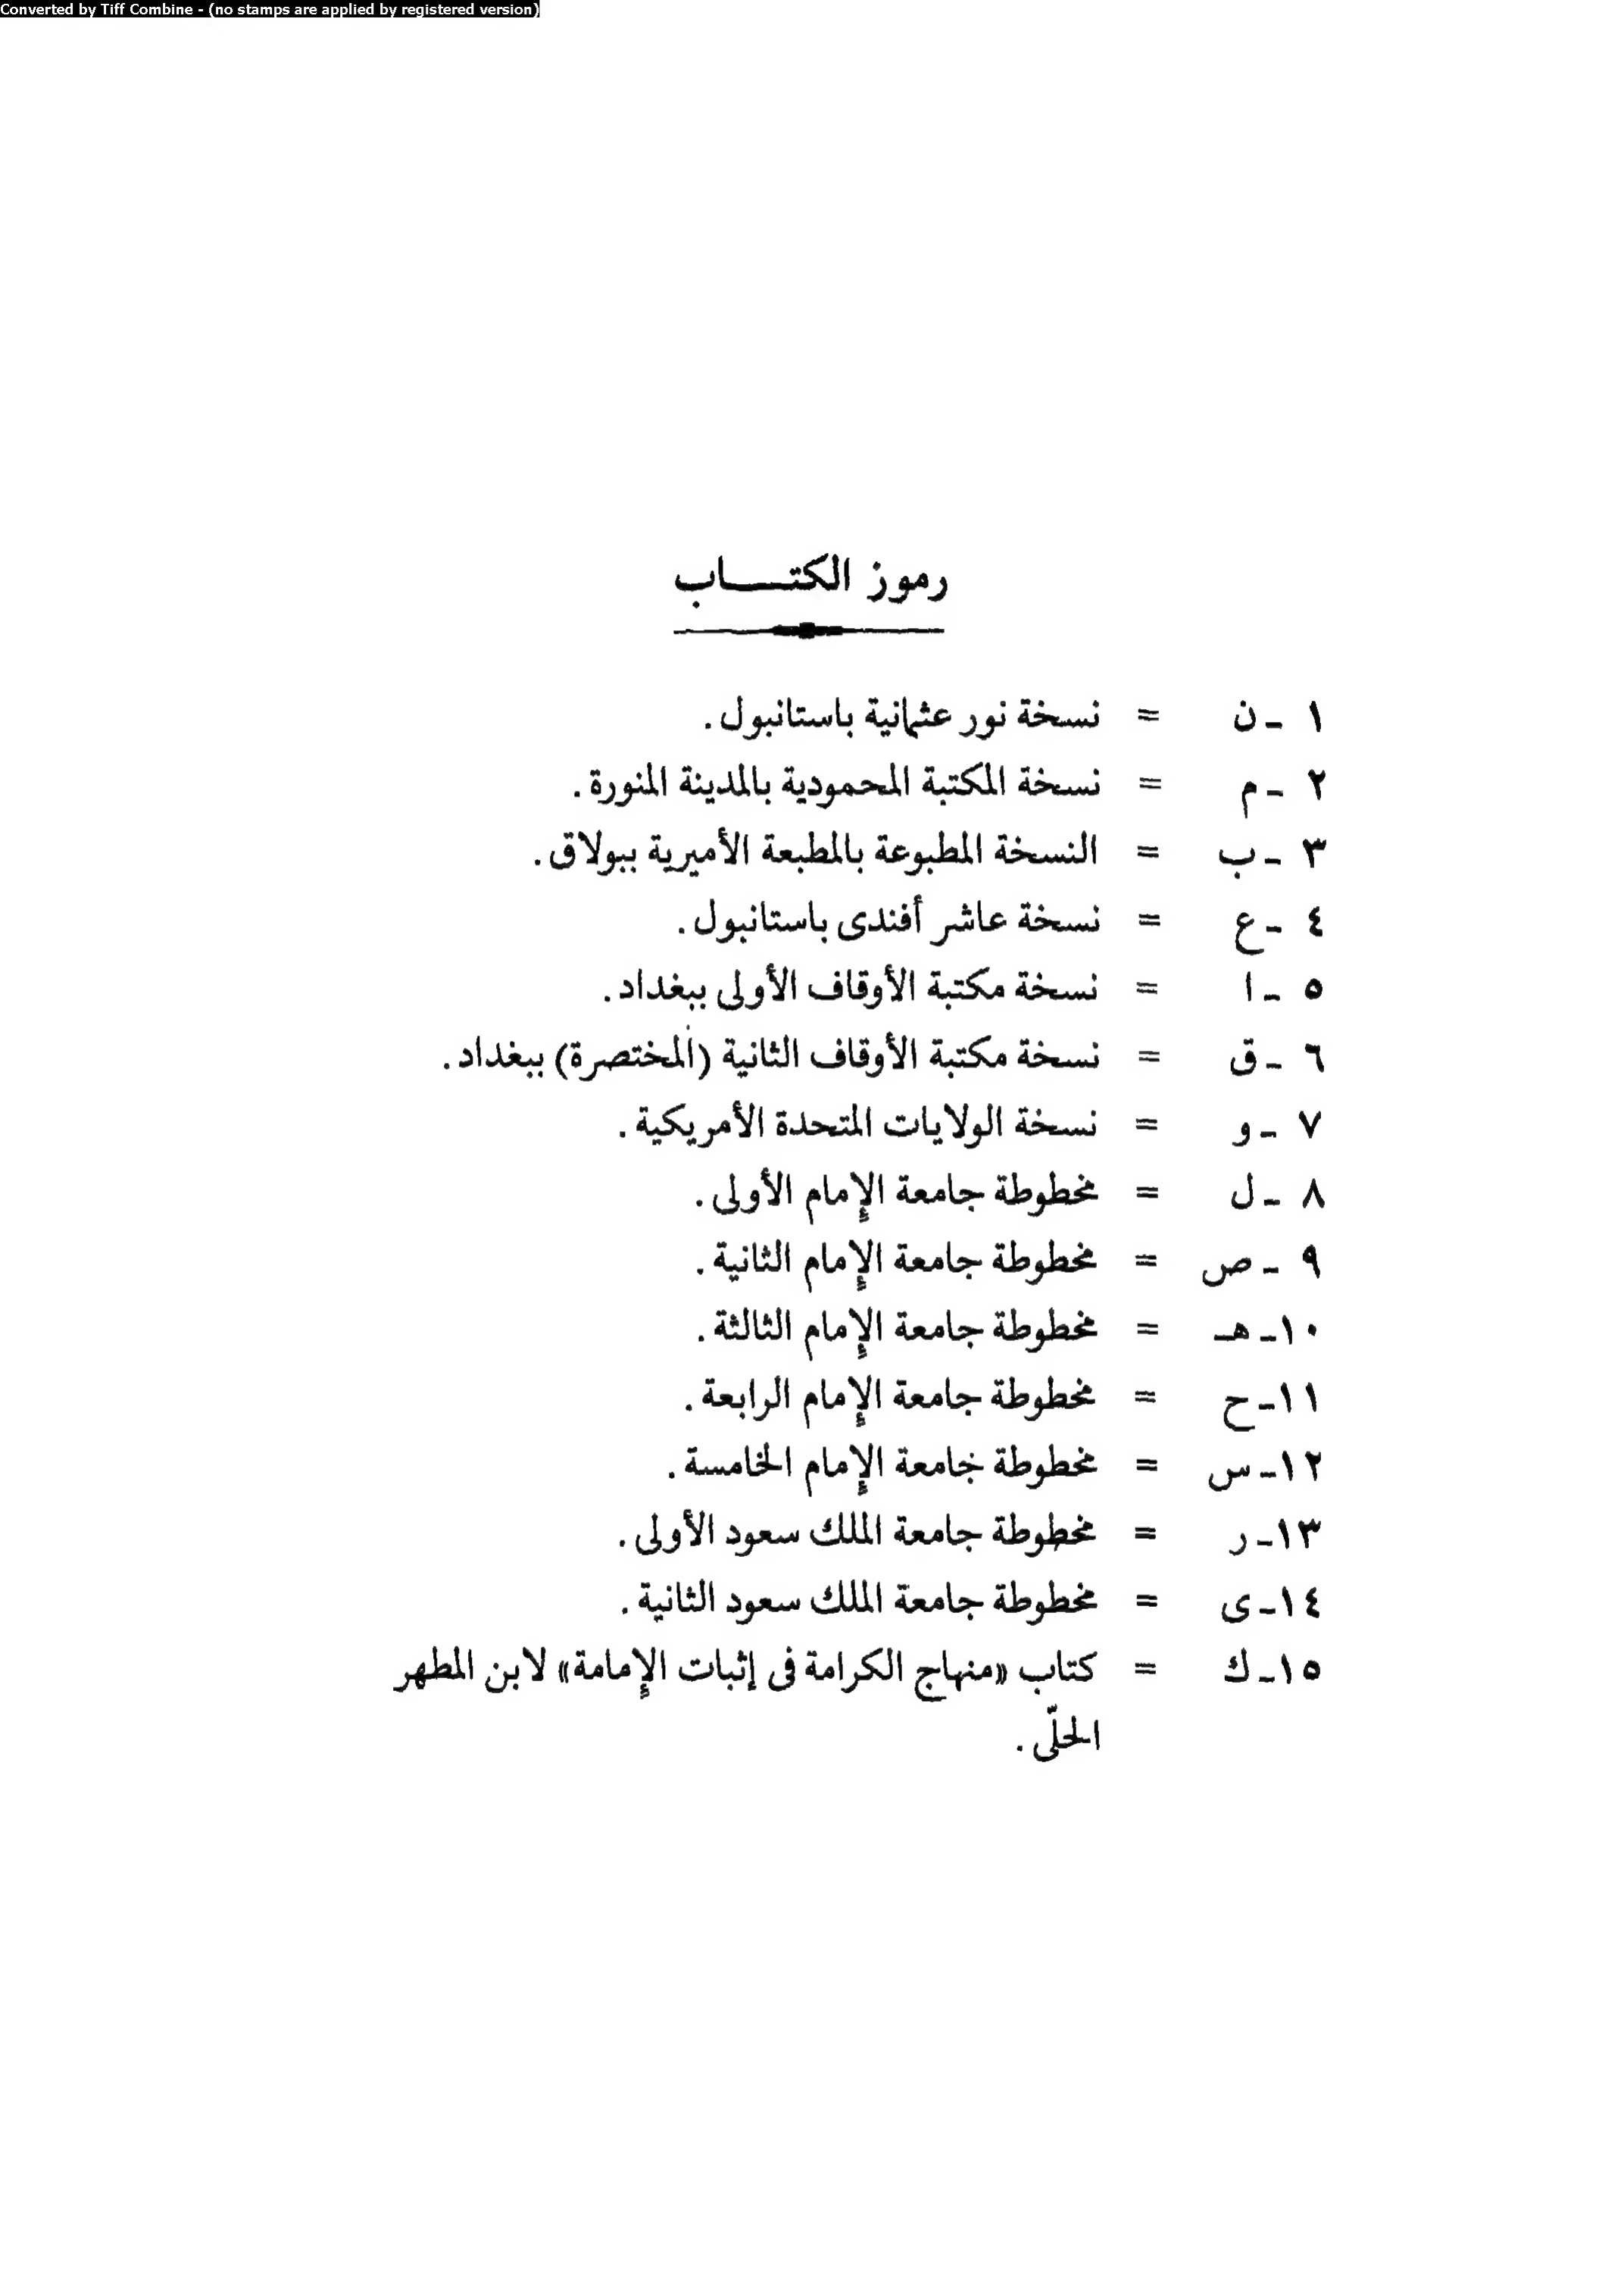 Converted by Tiff Combine - (no stamps are applied by registered version)
رموز الكتـــــاب
١ ـ ن = نسخة نور عثمانية باستانبول .
٢ ـ م = نسخة المكتبة المحمودية بالمدينة المنورة .
٣ ـ ب = النسخة المطبوعة بالمطبعة الأميرية ببولاق .
٤ ـ ع = نسخة عاشر أفندى باستانبول .
٥ ـ ا = نسخة مكتبة الأوقاف الأولى ببغداد .
٦ ـ ق = نسخة مكتبة الأوقاف الثانية (المختصرة) ببغداد .
٧ ـ و = نسخة الولايات المتحدة الأمريكية .
٨ ـ ل = مخطوطة جامعة الإمام الأولى .
٩ ـ ص = مخطوطة جامعة الإمام الثانية .
١٠ـ هـ = مخطوطة جامعة الإمام الثالثة .
١١ـ ح = مخطوطة جامعة الإمام الرابعة .
١٢ـ س = مخطوطة جامعة الإمام الخامسة .
١٣ـ ر = مخطوطة جامعة الملك سعود الأولى .
١٤ـ ى = مخطوطة جامعة الملك سعود الثانية .
١٥ـ ك = كتاب «منهاج الكرامة فى إثبات الإمامة» لابن المطهر
الحلّى .